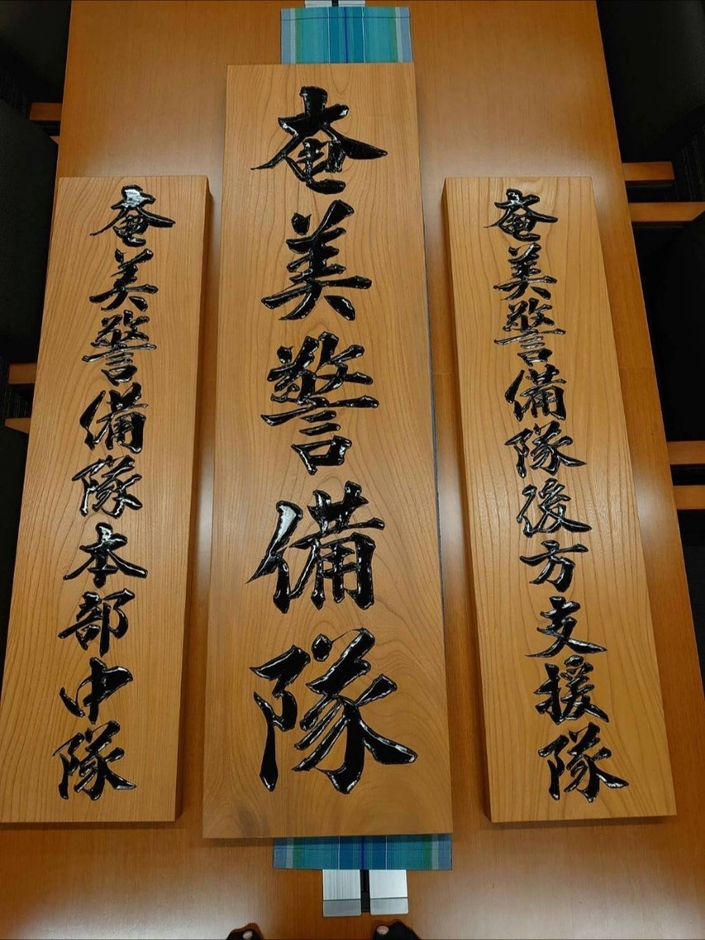 奄美警備隊
奄美警備隊本部中隊
奄美警備隊後方支援隊